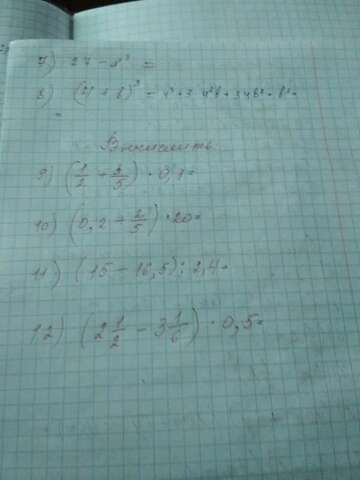 7) 27 - x³ =
8) (4 + b)³ = 4³ + 3·4²b + 3·4b² + b³ =
=
Вычислить
9) (1/2 + 1/5) · 0,1 =
10) (0,2 + 2/5) · 20 =
11) (15 - 16,5) : 2,4 =
12) (2 1/2 - 3 1/6) · 0,5 =